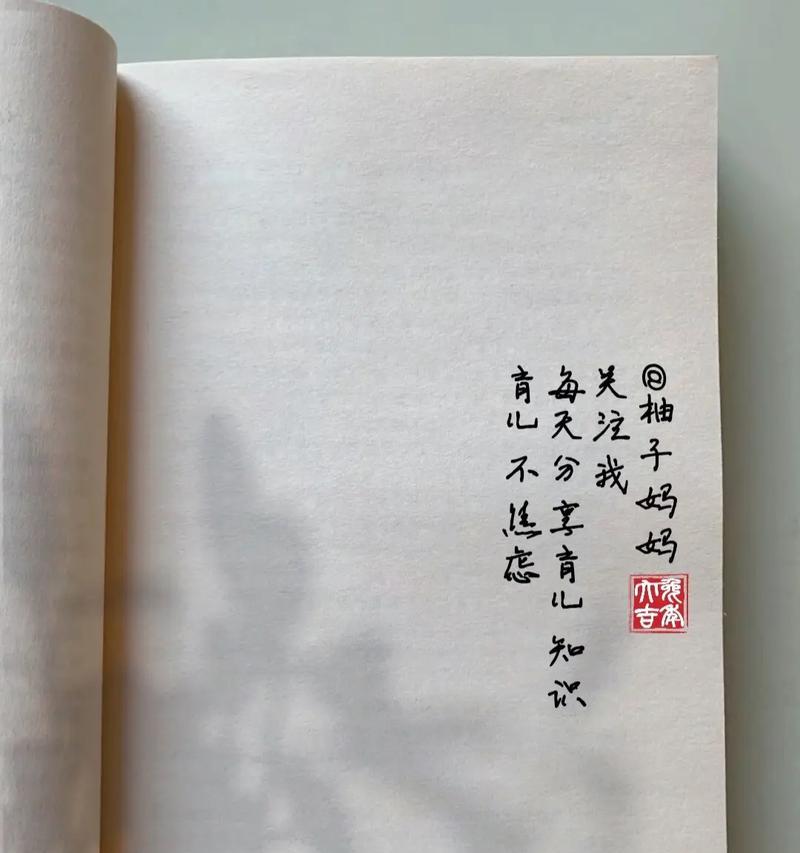 @柚子妈妈
关注我
每天分享育儿知识
育儿不焦虑
大吉